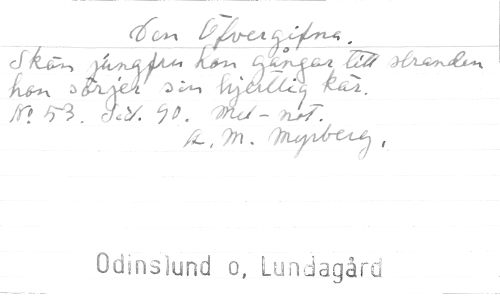 Den Öfvergifna.
Skön jungfru hon gångar till stranden
hon sörjer sin hjertlig kär.
No 53. Sid. 90. Mel-not.
A. M. Myrberg.
Odinslund o, Lundagård